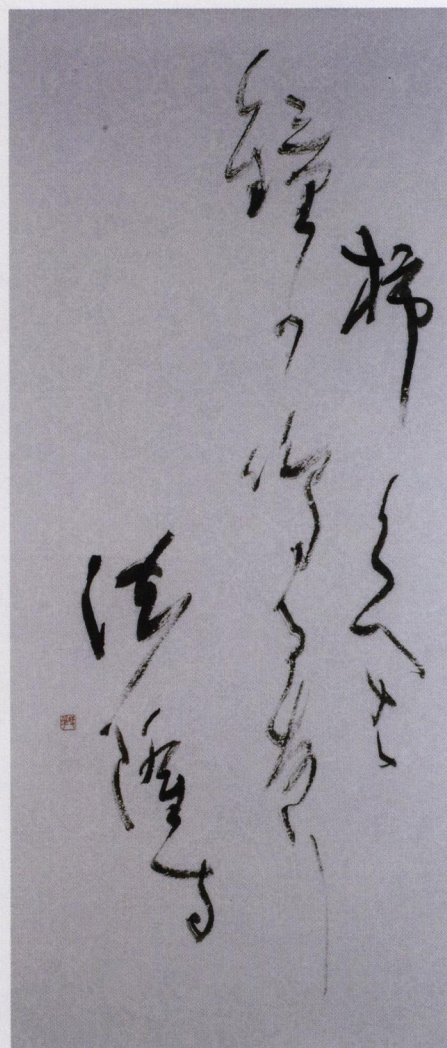 柿くへは
鐘か鳴るなり
法隆寺